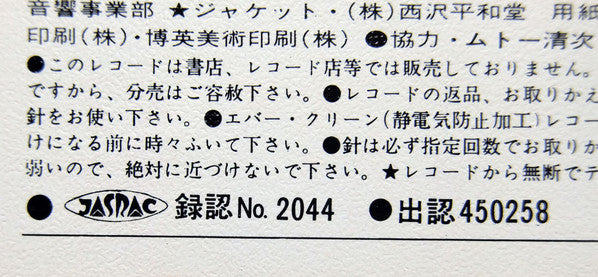 音響事業部 ★ジャケット・(株)西沢平和堂 用紙
印刷(株)・博英美術印刷(株) ●協力・ムトー清次
●このレコードは書店、レコード店等では販売しておりません。
ですから、分売はご容赦下さい。●レコードの返品、お取りかえ
針をお使い下さい。●エバー・クリーン(静電気防止加工)レコー
けになる前に時々ふいて下さい。●針は必ず指定回数でお取りか
弱いので、絶対に近づけないで下さい。★レコードから無断でテ
● JASRAC 録認No. 2044 ●出認450258